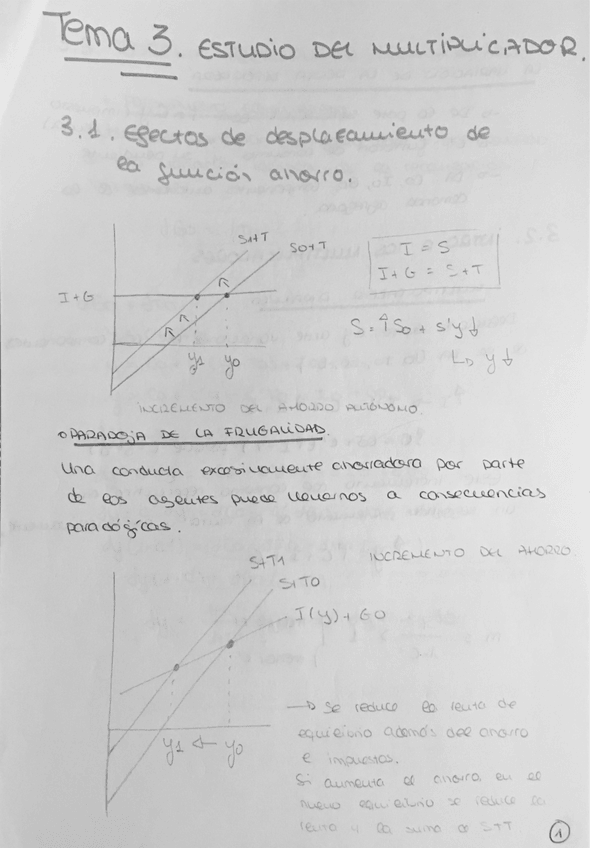 Tema 3. ESTUDIO DEL MULTIPLICADOR.
3.1. Efectos de desplazamiento de
la función ahorro.
S1+T
S0+T
I = S
I+G = S+T
I+G
S = ↑S0 + s'y ↓
↳ y ↓
y1 y0
INCREMENTO DEL AHORRO AUTÓNOMO.
PARADOJA DE LA FRUGALIDAD.
Una conducta excesivamente ahorradora por parte
de los agentes puede llevarnos a consecuencias
paradógicas.
S+T1
INCREMENTO DEL AHORRO.
S+T0
I(y)+G0
→ Se reduce la renta de
equilibrio además del ahorro
e impuestos.
y1 ← y0
Si aumenta el ahorro, en el
nuevo equilibrio se reduce la
renta y la suma de S+T
1